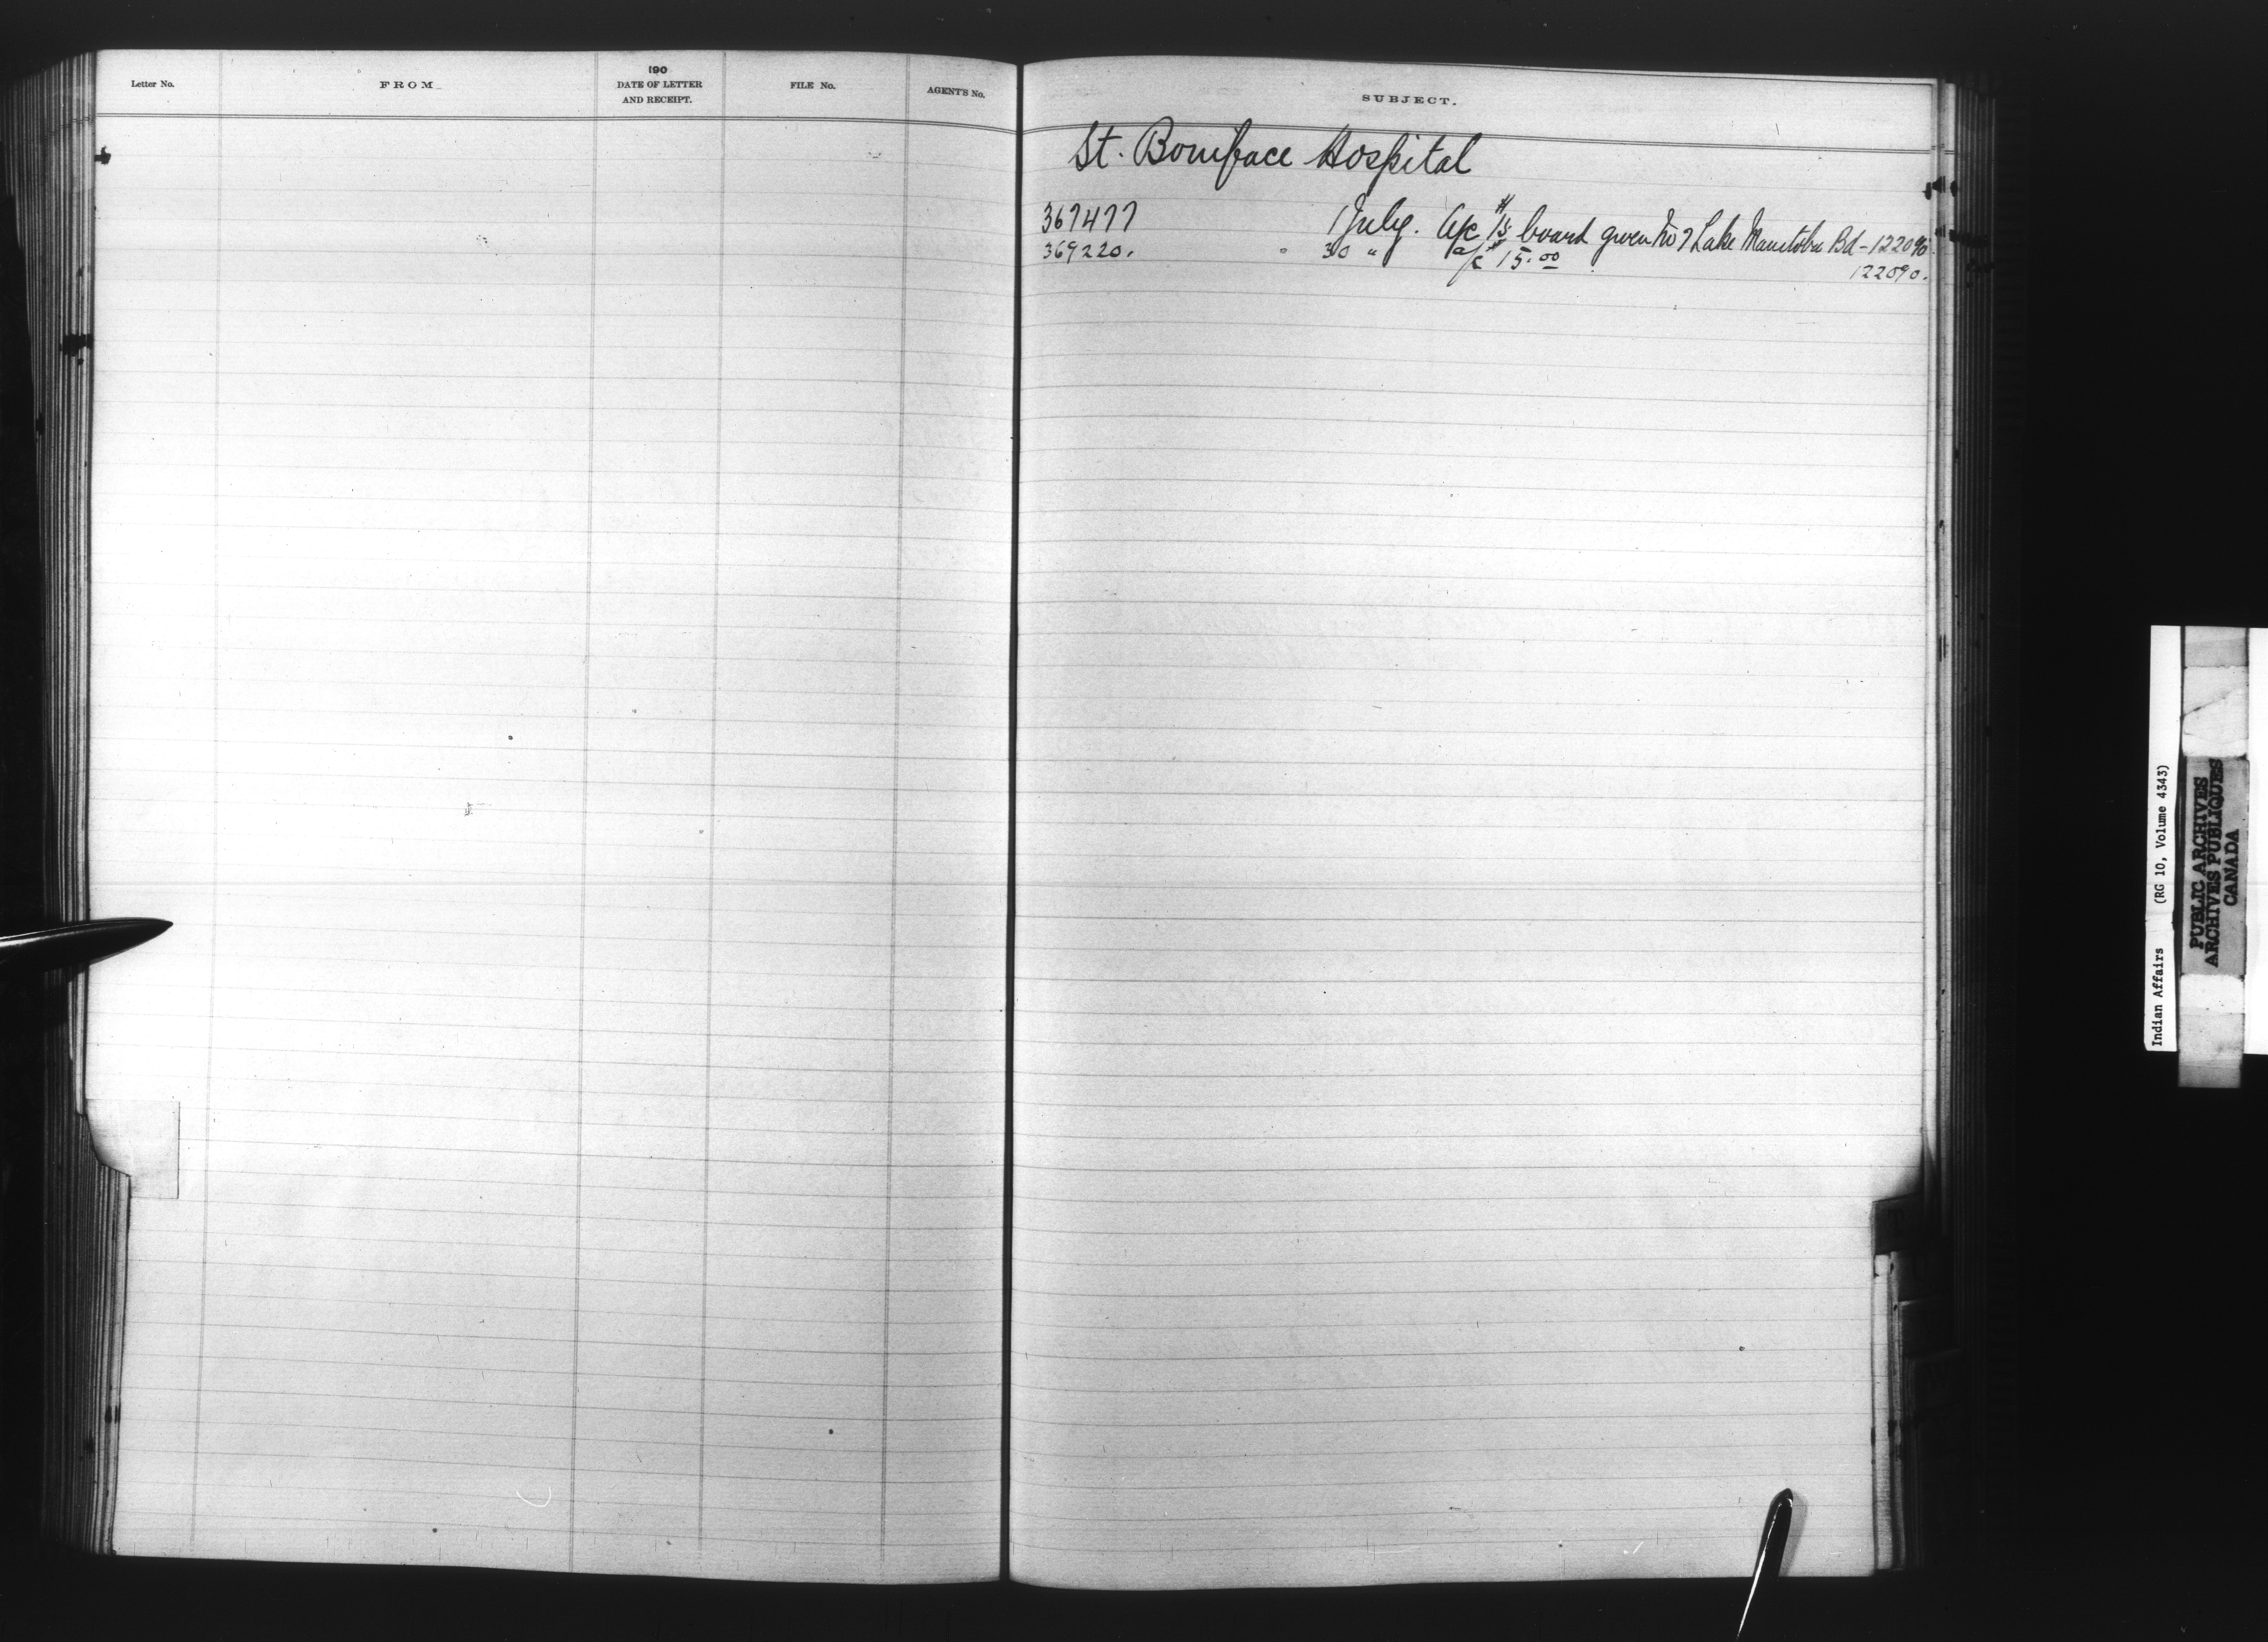 Letter No.
FROM
190
DATE OF LETTER
AND RECEIPT.
FILE No.
AGENT'S No.
SUBJECT.
St. Boniface Hospital
367477 1 July. a/c $15 board given No 7 Lake Manitoba Bd - 122090.
369220. " 30 " a/c $15.00
122090.
Indian Affairs (RG 10, Volume 4343)
PUBLIC ARCHIVES
ARCHIVES PUBLIQUES
CANADA